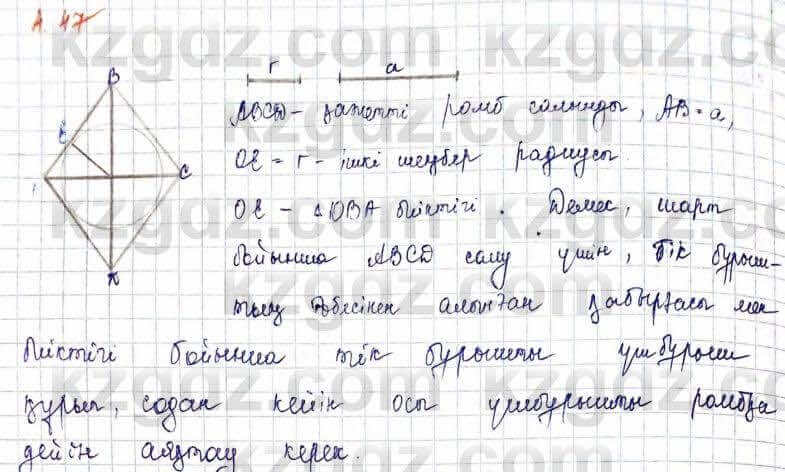 А. 47
r a
B
E
C
ABCD – қажетті ромб салынды, AB = a,
OE = r – ішкі шеңбер радиусы.
OE – ΔOBA биіктігі. Демек, шарт
бойынша ABCD салу үшін, тік бұрыш-
тың төбесінен алынған қабырғасы мен
биіктігі бойынша тік бұрышты үшбұрыш
құрып, содан кейін осы үшбұрышты ромбқа
дейін аяқтау керек.
kzgdz.com